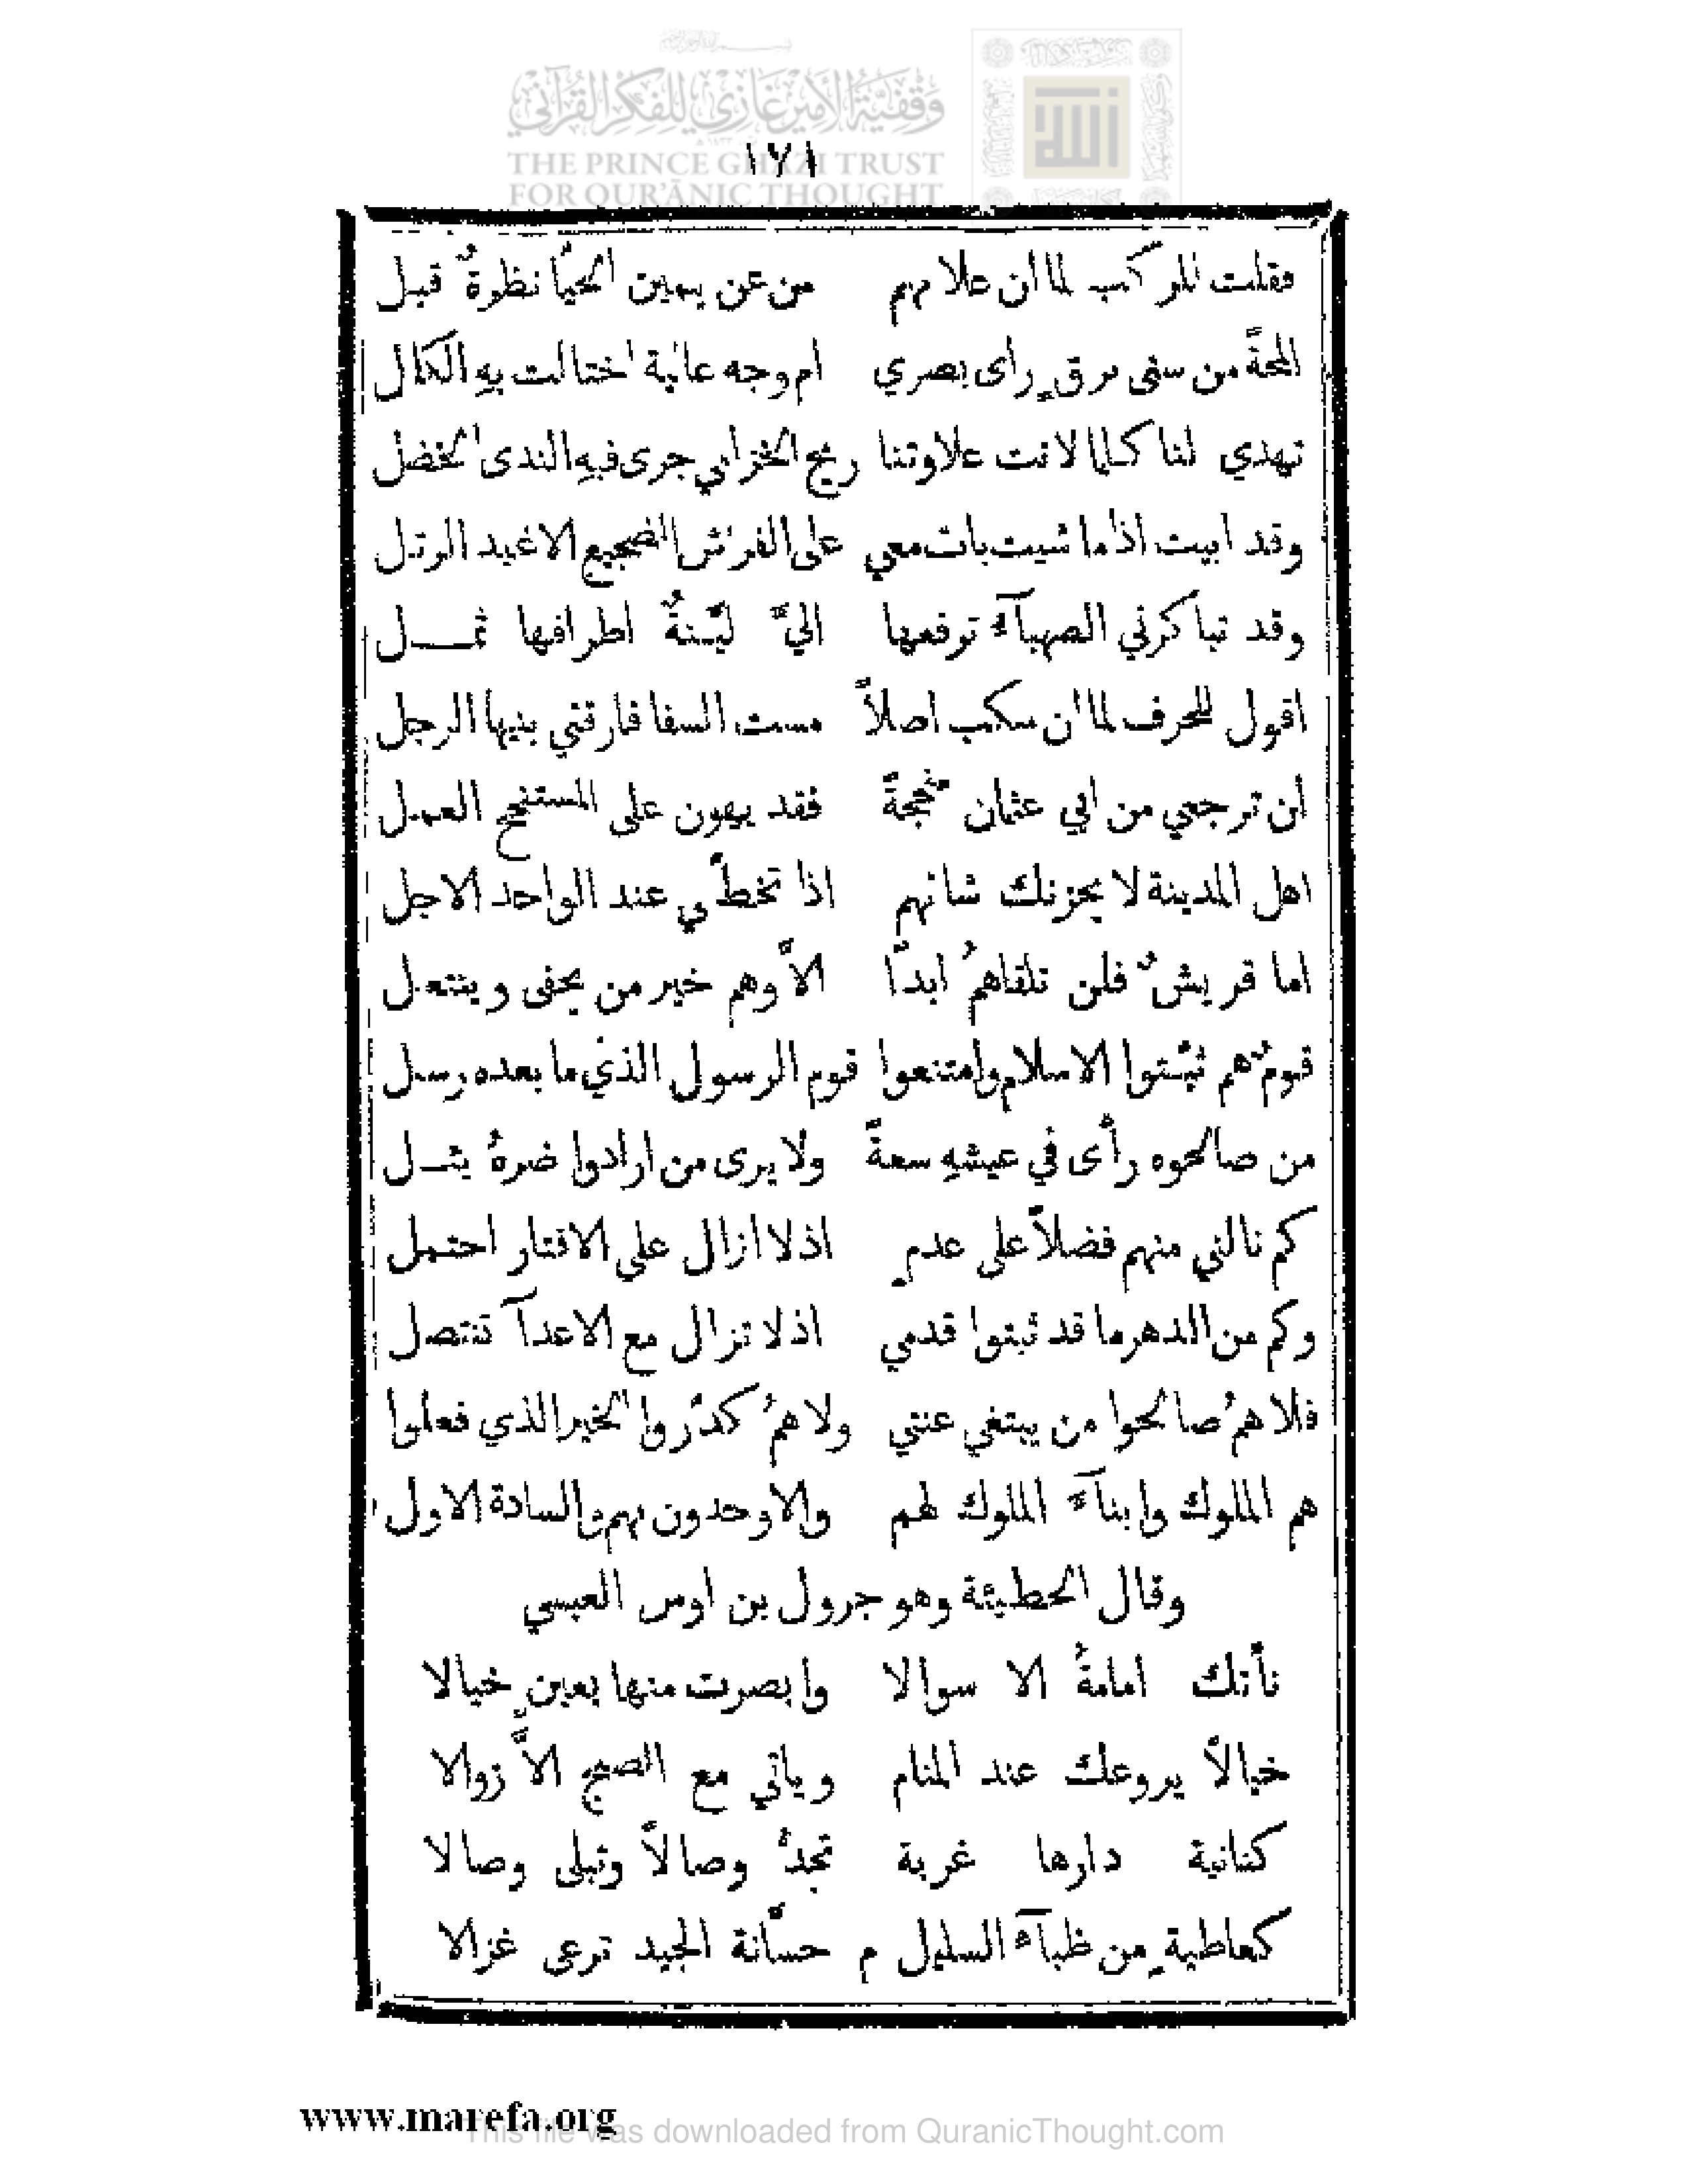 وقفية الأمير غازي للفكر القرآني
THE PRINCE GHAZI TRUST
FOR QUR'ĀNIC THOUGHT
١٧١
فقلت للركب لما ان علا بهم من عن يمين الحيَّا نظرةٌ قبل
المحةً من سنى برقٍ راى بصري ام وجه عالية اختالت بهِ الكلل
تهدي لنا كلما لانت علاوتنا ريح الخزامي جرى فيهِ الندى الخضل
وقد ابيت اذا ما شيت بات معي على الفراش الضجيع الاغيد الرتل
وقد تباكرني الصهبآء ترفعها اليَّ ليّنةٌ اطرافها ثمل
اقول للحرف لما ان سكب اصلاً مست السفا فارقني بنيها الرجل
ان ترجعي من ابي عثمان منجحةً فقد يهون على المستنجح العمل
اهل المدينة لا يحزنك شانهم اذا تخطَّي عند الواحد الاجل
اما قريشٌ فلن تلقاهمُ ابداً الاَّ وهم خير من يحفى وينتعل
قومٌ هم ثبّتوا الاسلام وامتنعوا قوم الرسول الذي ما بعده رسل
من صالحوه رأى في عيشهِ سعةً ولا يرى من ارادوا ضرهُ يئل
كم نالني منهم فضلاً على عدمٍ اذ لا ازال على الاقتار احتمل
وكم من الدهر ما قد ثبتوا قدمي اذ لا تزال مع الاعدآ تنتصل
فلا همُ صالحوا من يبتغي عنتي ولا همُ كدّروا الخير الذي فعلوا
هم الملوك وابنآء الملوك لهم والاوحدون بهم والسادة الاول
وقال الحطيئة وهو جرول بن اوس العبسي
نأتك امامةُ الا سوالا وابصرت منها بعينٍ خيالا
خيالاً يروعك عند المنام وياتي مع الصبح الاَّ زوالا
كنانية دارها غربة تجدُّ وصالاً وتبلى وصالا
كعاطيةٍ من ظبآء السليل م حسّانة الجيد ترعى غزالا
www.marefa.org
This file was downloaded from QuranicThought.com